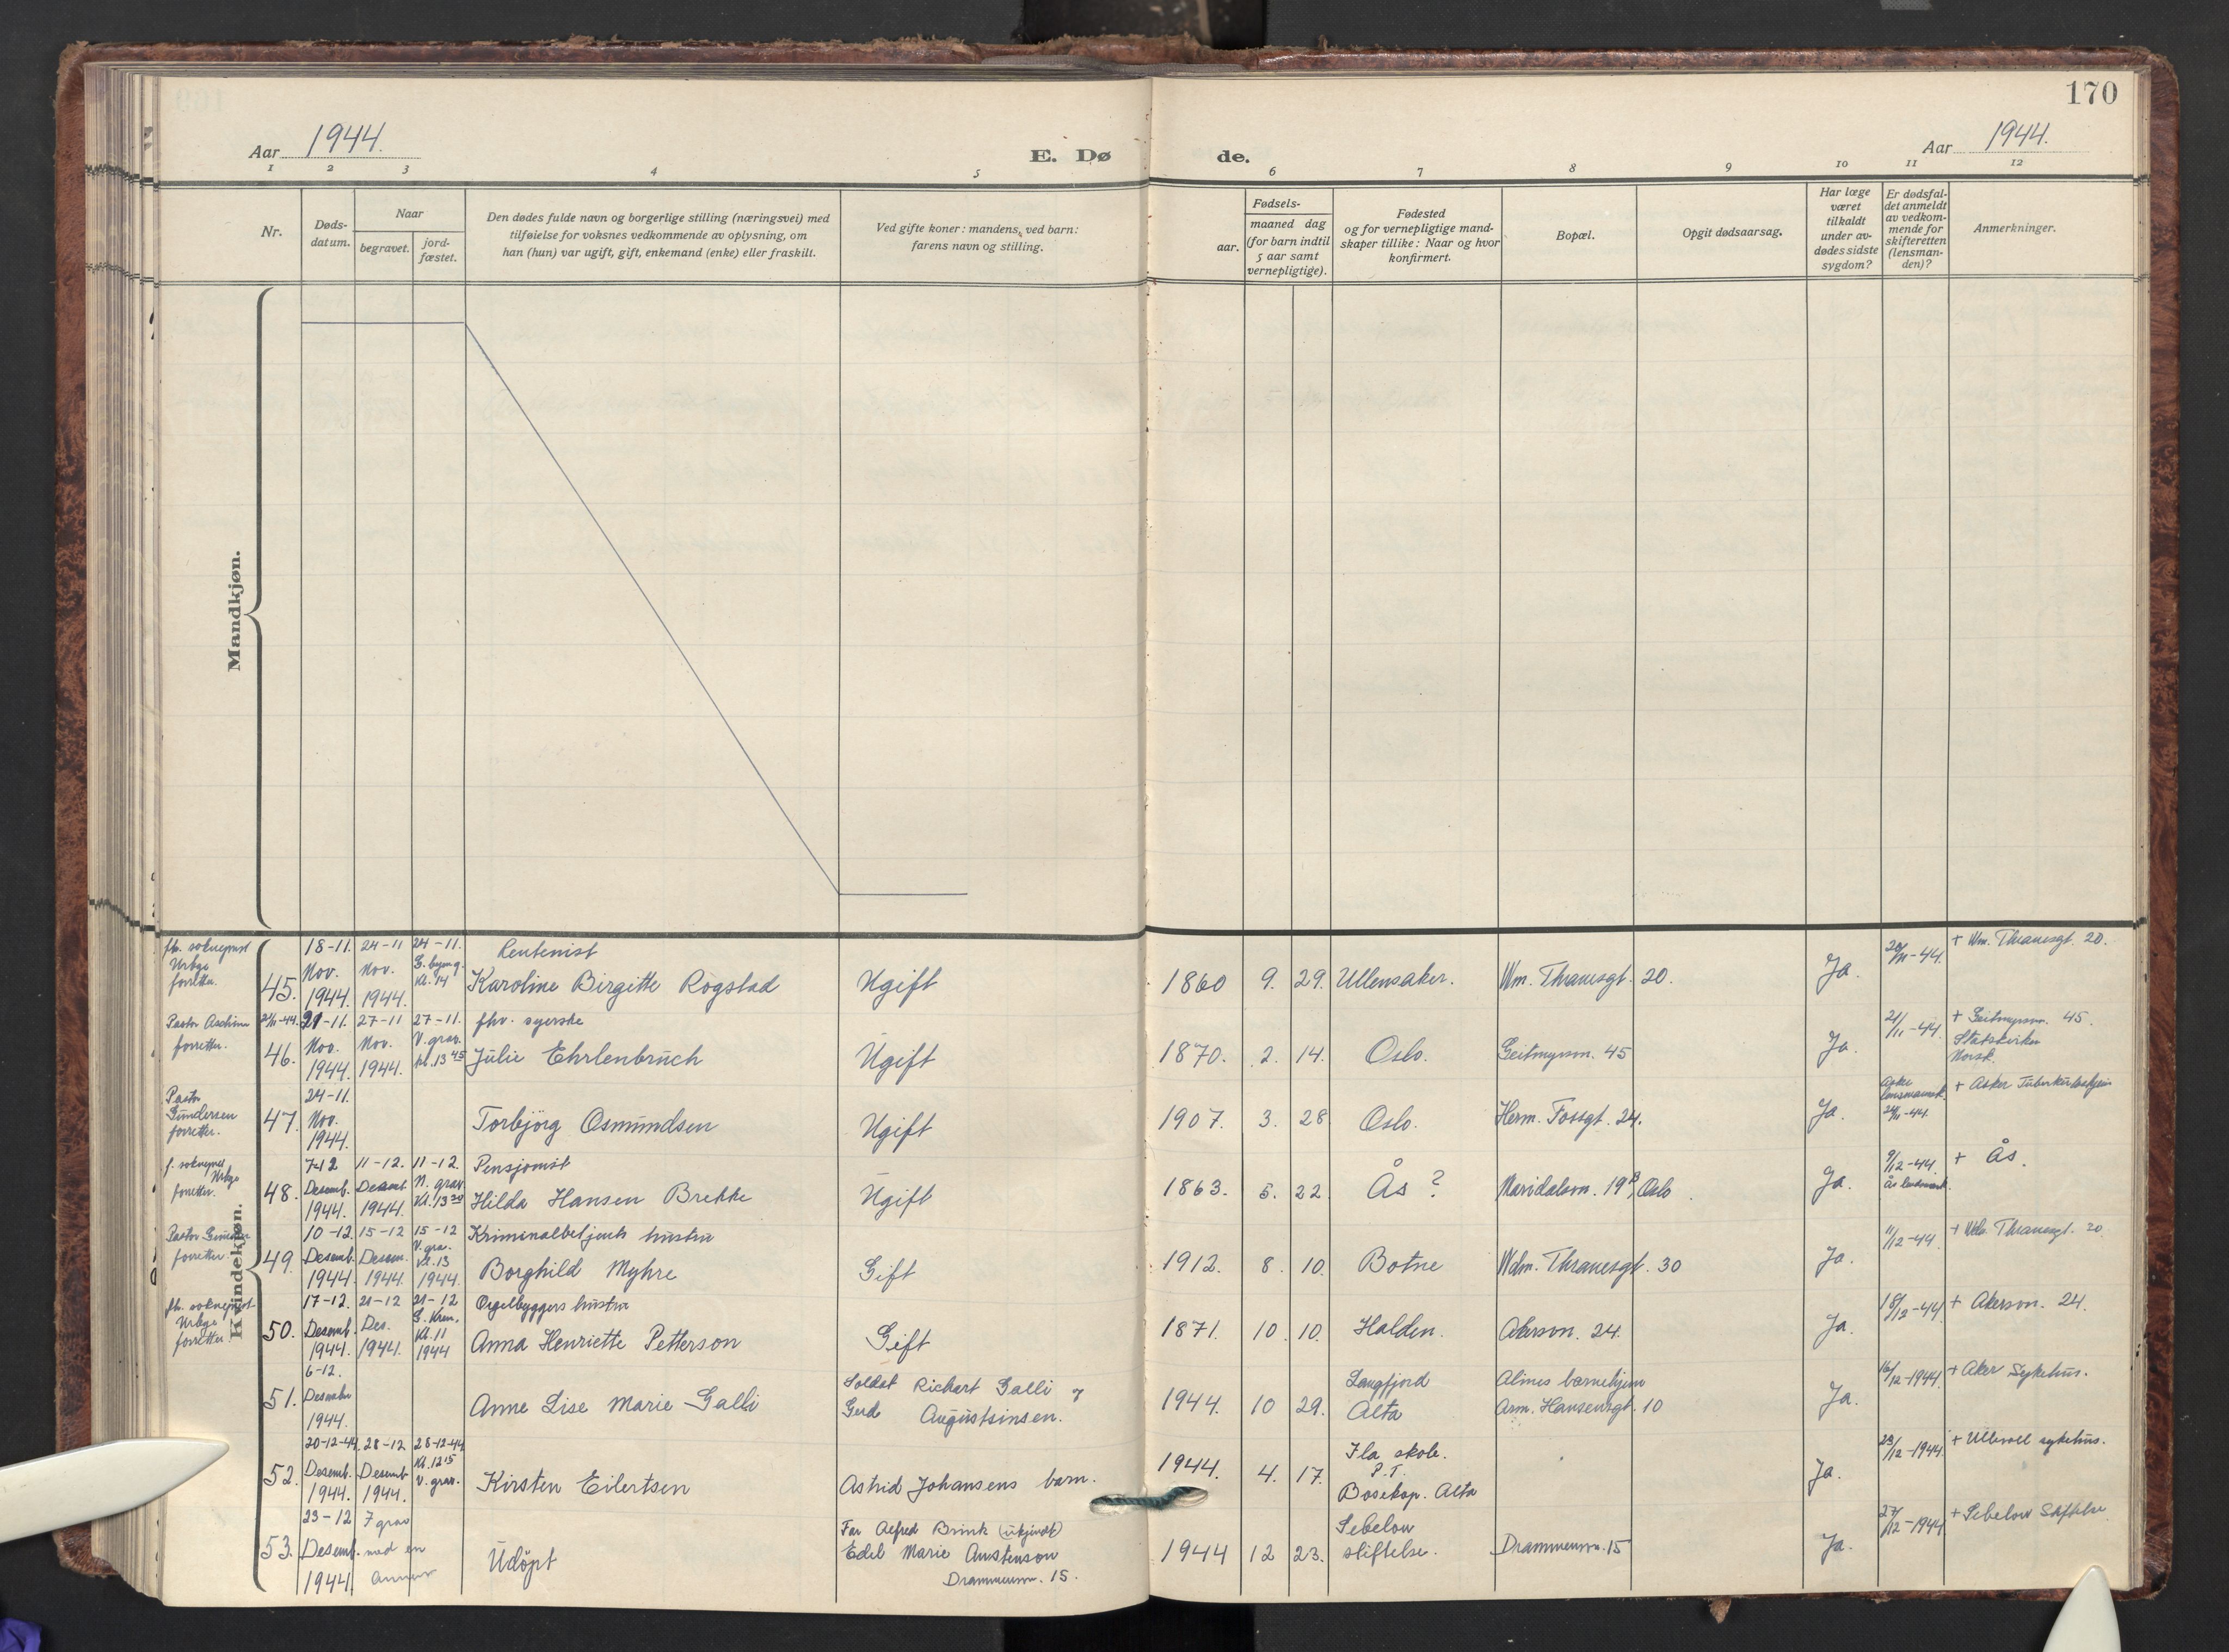 170
Aar 1944.
E. Dø
de.
Aar 1944.
1 2 3 4 5 6 7 8 9 10 11 12
Nr.
Døds-
datum.
Naar
begravet.
jord-
fæstet.
Den dødes fulde navn og borgerlige stilling (næringsvei) med
tilføielse for voksnes vedkommende av oplysning, om
han (hun) var ugift, gift, enkemand (enke) eller fraskilt.
Ved gifte koner: mandens, ved barn:
farens navn og stilling.
Fødsels-
aar.
maaned dag
(for barn indtil
5 aar samt
vernepligtige).
Fødested
og for vernepligtige mand-
skaper tillike: Naar og hvor
konfirmert.
Bopæl.
Opgit dødsaarsag.
Har læge
været
tilkaldt
under av-
dødes sidste
sygdom?
Er dødsfal-
det anmeldt
av vedkom-
mende for
skifteretten
(lensman-
den)?
Anmerkninger.
Mandkjøn.
Kvindekjøn.
fh. sokneprest
Urbye
forretter.
45.
18-11.
Nov.
1944.
24-11
Nov.
1944.
24-11.
Kl. 14
Rentenist
Karoline Birgitte Rogstad
Ugift
1860 9. 29. Ullensaker. Wm. Thranesgt. 20. Ja.
20/11-44.
+ Wm. Thranesgt. 20.
Pastor
forretter.
46.
21/11-44. 21-11.
Nov.
1944.
27-11
Nov.
1944.
27-11.
V. grav.
kl. 13 45
fhv. syerske
Julie Ehrlenbruch
Ugift
1870. 2. 14. Oslo. Geitmyrsvn. 45 Ja.
21/11-44
+ Geitmyrsvn. 45.
Statskirken
Norsk.
Pastor
Gundersen
forretter.
47.
24-11.
Nov.
1944.
Torbjörg Osmundsen
Ugift
1907. 3. 28 Oslo. Herm. Fossgt. 24. Ja.
Asker
-44.
+ Asker Tuberkulosehjem
f. sokneprest
Urbye
forretter.
48.
7-12
Desemb.
1944.
11-12.
Desemb
1944.
11-12.
N. grav
Kl. 13 30
Pensjonist
Hilda Hansen Brekke
Ugift
1863. 5. 22. Ås ? Maridalsvn. 19 B, Oslo. Ja.
9/12-44.
+ Ås.
Pastor
forretter.
49.
10-12
Desemb.
1944.
15-12
Desem.
1944.
15-12
V. grav.
kl. 13
1944.
Kriminalbetjents hustru
Borghild Myhre
Gift
1912. 8. 10. Botne Wdm. Thranesgt. 30 Ja.
11/12-44
+ Wdm. Thranesgt. 30.
fh. sokneprest
Urbye
forretter.
50.
17-12.
Desemb.
1944.
21-12
Des.
1944.
21-12
Kl. 11
1944
Orgelbyggers hustru
Anna Henriette Petterson
Gift
1871. 10. 10. Halden. Akersvn. 24. Ja.
18/12-44
+ Akersvn. 24.
51.
6-12.
Desember
1944.
Anne Lise Marie Galli
Soldat Richart Galli
Gerd Augustsinsen.
1944. 10 29.
Langfjord
Alta
Almes barnehjem
Arm. Hansensgt. 10
Ja.
16/12-1944.
+ Aker Sykehus.
52.
20-12-44.
Desemb.
1944.
28-12
Desemb
1944.
28-12-44
Kl. 12 15
V. grav.
Kirsten Eilertsen
Astrid Johansens barn.
1944. 4. 17.
Ila skole.
P.T.
Bosekop. Alta
Ja.
23/12-1944.
+ Ullevoll sykehus.
53.
23-12
Desemb.
1944.
7 grav
med en
annen
Udöpt
Far Alfred Brink (ukjendt)
Edel Marie Austenson
Drammensvn. 15.
1944 12 23.
Sebelow
stiftelse.
Drammensvn. 15 Ja.
27/12-1944
+ Sebelow Stiftelse